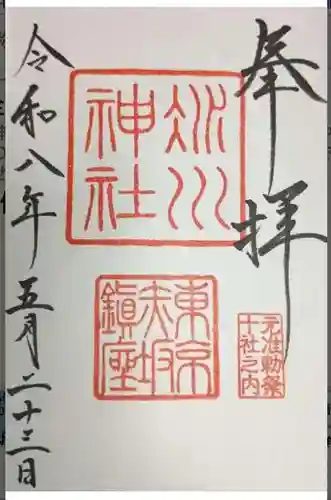 奉拝
氷川神社
東京赤坂鎮座
元准勅祭十社之内
令和八年五月二十三日